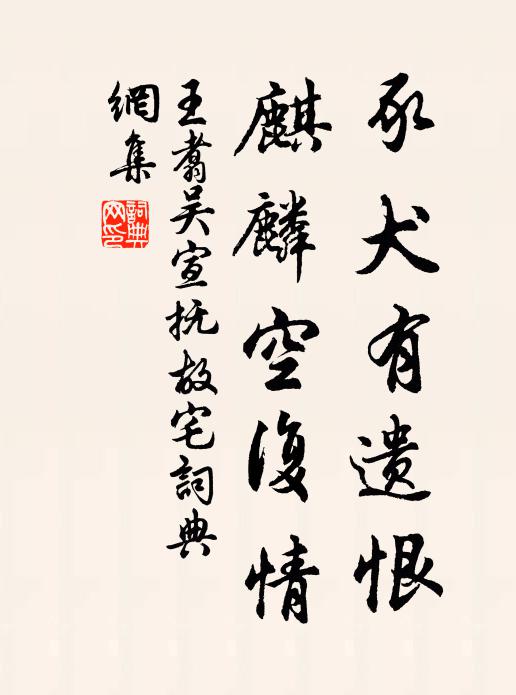 豕犬有遗恨
麒麟空復情
王翥吴宣抚故宅詞典
網集
詞典
网印